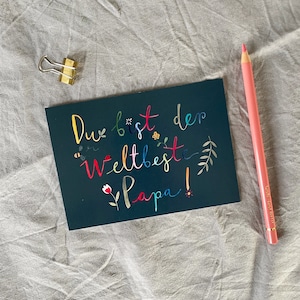 Du bist der
Weltbeste
Papa!